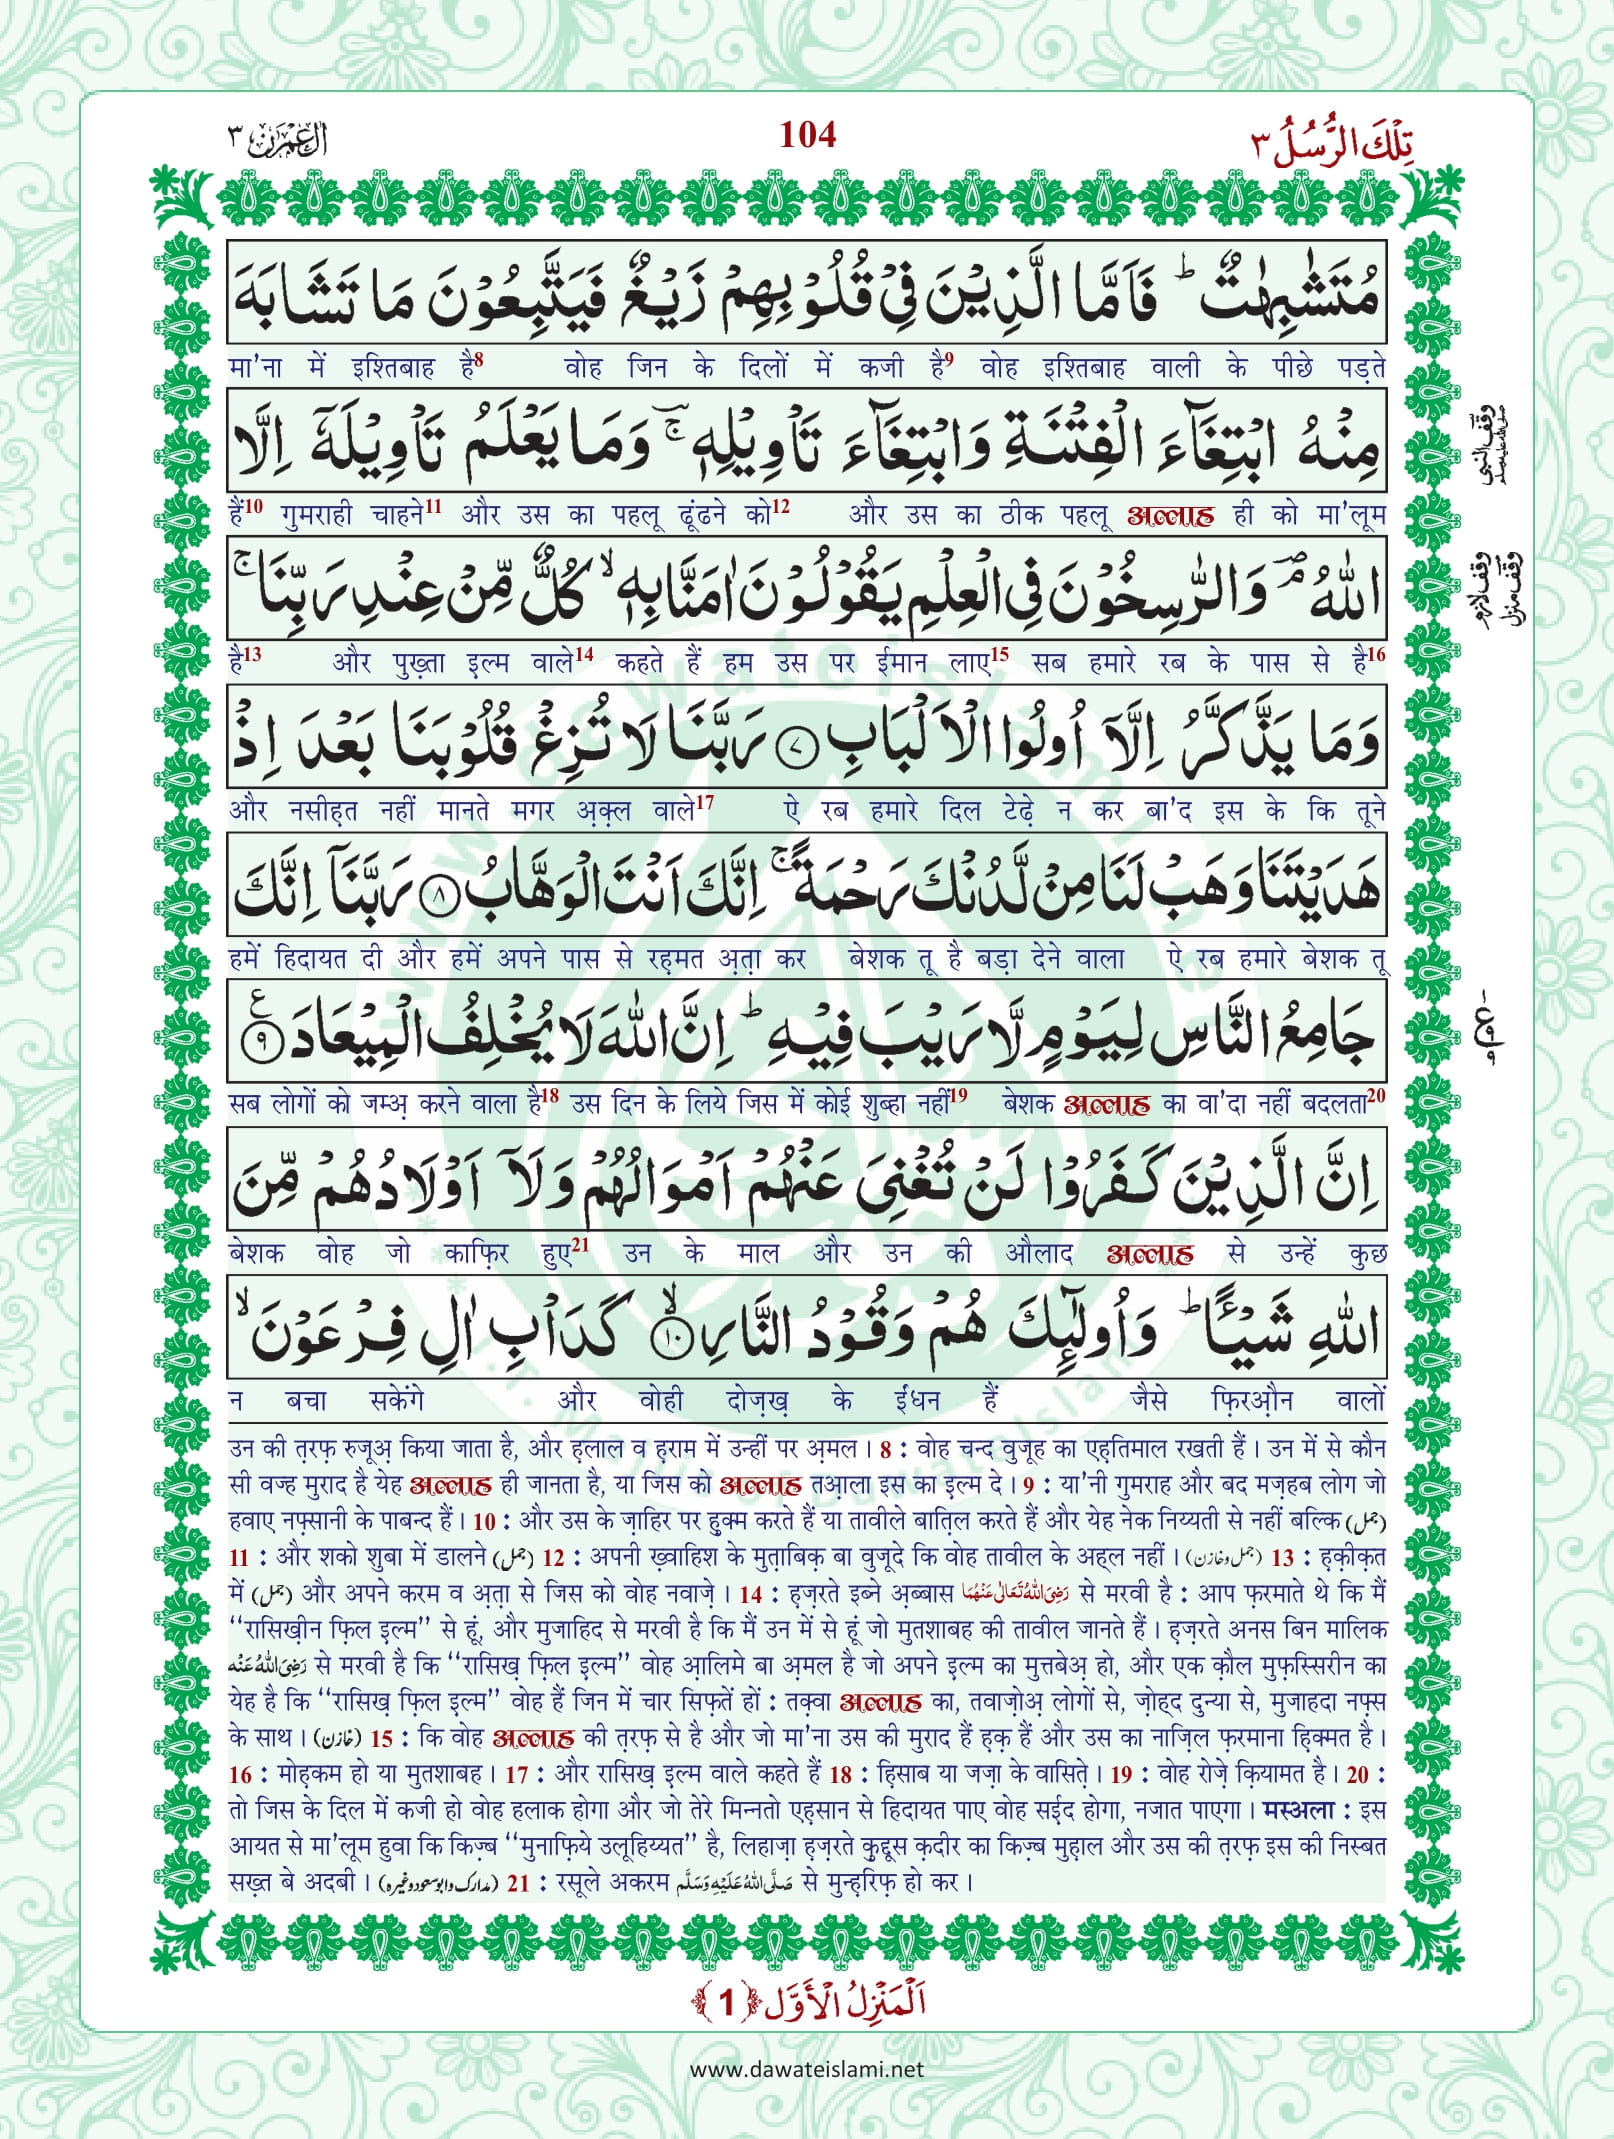 تِلْكَ الرُّسُلُ ٣
104
اٰلِ عِمْرٰن ٣
مُتَشٰبِهٰتٌ ؕ فَاَمَّا الَّذِیْنَ فِیْ قُلُوْبِهِمْ زَیْغٌ فَیَتَّبِعُوْنَ مَا تَشَابَهَ
मा'ना में इश्तिबाह है8 वोह जिन के दिलों में कजी है9 वोह इश्तिबाह वाली के पीछे पड़ते
مِنْهُ ابْتِغَآءَ الْفِتْنَةِ وَابْتِغَآءَ تَاْوِیْلِهٖ ۚ وَمَا یَعْلَمُ تَاْوِیْلَهٗۤ اِلَّا
हैं10 गुमराही चाहने11 और उस का पहलू ढूंढने को12 और उस का ठीक पहलू अल्लाह ही को मा'लूम
اللّٰهُ ۘ وَالرّٰسِخُوْنَ فِی الْعِلْمِ یَقُوْلُوْنَ اٰمَنَّا بِهٖ ۙ كُلٌّ مِّنْ عِنْدِ رَبِّنَا ۚ
है13 और पुख़्ता इल्म वाले14 कहते हैं हम उस पर ईमान लाए15 सब हमारे रब के पास से है16
وَمَا یَذَّكَّرُ اِلَّاۤ اُولُوا الْاَلْبَابِ ﴿۷﴾ رَبَّنَا لَا تُزِغْ قُلُوْبَنَا بَعْدَ اِذْ
और नसीह़त नहीं मानते मगर अ़क़्ल वाले17 ऐ रब हमारे दिल टेढ़े न कर बा'द इस के कि तूने
هَدَیْتَنَا وَهَبْ لَنَا مِنْ لَّدُنْكَ رَحْمَةً ۚ اِنَّكَ اَنْتَ الْوَهَّابُ ﴿۸﴾ رَبَّنَاۤ اِنَّكَ
हमें हिदायत दी और हमें अपने पास से रह़मत अ़त़ा कर बेशक तू है बड़ा देने वाला ऐ रब हमारे बेशक तू
جَامِعُ النَّاسِ لِیَوْمٍ لَّا رَیْبَ فِیْهِ ؕ اِنَّ اللّٰهَ لَا یُخْلِفُ الْمِیْعَادَ ﴿۹﴾ ع
सब लोगों को जम्अ़ करने वाला है18 उस दिन के लिये जिस में कोई शुब्हा नहीं19 बेशक अल्लाह का वा'दा नहीं बदलता20
اِنَّ الَّذِیْنَ كَفَرُوْا لَنْ تُغْنِیَ عَنْهُمْ اَمْوَالُهُمْ وَلَاۤ اَوْلَادُهُمْ مِّنَ
बेशक वोह जो काफ़िर हुए21 उन के माल और उन की औलाद अल्लाह से उन्हें कुछ
اللّٰهِ شَیْـًٔا ؕ وَاُولٰٓىِٕكَ هُمْ وَقُوْدُ النَّارِ ﴿۱۰﴾ ۙ كَدَاْبِ اٰلِ فِرْعَوْنَ ۙ
न बचा सकेंगे और वोही दोज़ख़ के ईंधन हैं जैसे फ़िरऔ़न वालों
उन की त़रफ़ रुजूअ़ किया जाता है, और ह़लाल व ह़राम में उन्हीं पर अ़मल । 8 : वोह चन्द वुजूह का एह़तिमाल रखती हैं । उन में से कौन
सी वज्ह मुराद है येह अल्लाह ही जानता है, या जिस को अल्लाह तआ़ला इस का इल्म दे । 9 : या'नी गुमराह और बद मज़हब लोग जो
हवाए नफ़्सानी के पाबन्द हैं । 10 : और उस के ज़ाहिर पर हुक्म करते हैं या तावीले बात़िल करते हैं और येह नेक निय्यती से नहीं बल्कि (جمل)
11 : और शको शुबा में डालने (جمل) 12 : अपनी ख़्वाहिश के मुत़ाबिक़ बा वुजूदे कि वोह तावील के अह्ल नहीं । (جمل وخازن) 13 : ह़क़ीक़त
में (جمل) और अपने करम व अ़त़ा से जिस को वोह नवाज़े । 14 : ह़ज़रते इब्ने अ़ब्बास رَضِیَ اللهُ تَعَالٰی عَنْهُمَا से मरवी है : आप फ़रमाते थे कि मैं
“रासिख़ीन फ़िल इल्म” से हूं, और मुजाहिद से मरवी है कि मैं उन में से हूं जो मुतशाबह की तावील जानते हैं । ह़ज़रते अनस बिन मालिक
رَضِیَ اللهُ عَنْه से मरवी है कि “रासिख़ फ़िल इल्म” वोह आ़लिमे बा अ़मल है जो अपने इल्म का मुत्तबेअ़ हो, और एक क़ौल मुफ़स्सिरीन का
येह है कि “रासिख़ फ़िल इल्म” वोह हैं जिन में चार सिफ़तें हों : तक़्वा अल्लाह का, तवाज़ोअ़ लोगों से, ज़ोह्द दुन्या से, मुजाहदा नफ़्स
के साथ । (خازن) 15 : कि वोह अल्लाह की त़रफ़ से है और जो मा'ना उस की मुराद हैं ह़क़ हैं और उस का नाज़िल फ़रमाना ह़िक्मत है ।
16 : मोह़कम हो या मुतशाबह । 17 : और रासिख़ इल्म वाले कहते हैं 18 : ह़िसाब या जज़ा के वासित़े । 19 : वोह रोज़े क़ियामत है । 20 :
तो जिस के दिल में कजी हो वोह हलाक होगा और जो तेरे मिन्नतो एह़सान से हिदायत पाए वोह सई़द होगा, नजात पाएगा । मस्अला : इस
आयत से मा'लूम हुवा कि किज़्ब “मुनाफ़िये उलूहिय्यत” है, लिहाज़ा ह़ज़रते क़ुद्दूस क़दीर का किज़्ब मुह़ाल और उस की त़रफ़ इस की निस्बत
सख़्त बे अदबी । (مدارک وابوسعود وغیرہ) 21 : रसूले अकरम صَلَّی اللهُ عَلَیْهِ وَسَلَّم से मुन्ह़रिफ़ हो कर ।
وقف النبی
وقف لازم
وقف منزل
اَلْمَنْزِلُ الْاَوَّل ﴿1﴾
www.dawateislami.net